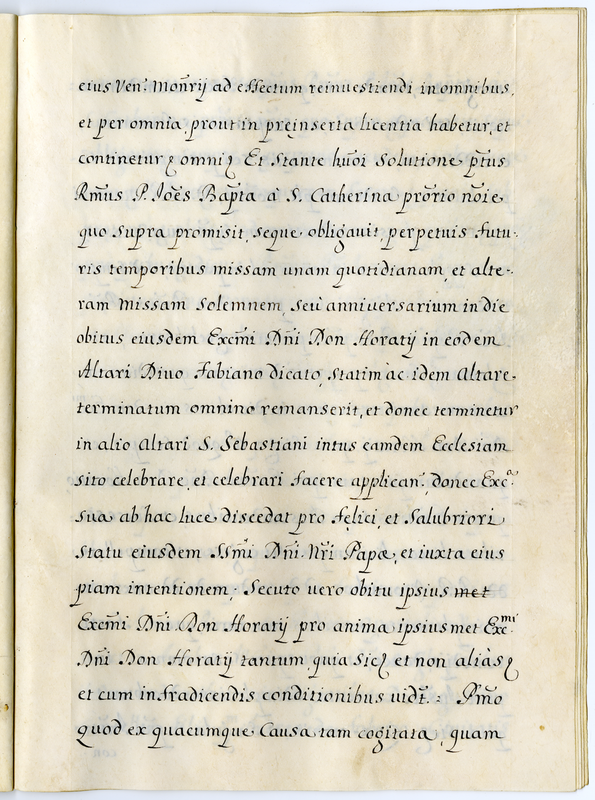 eius Ven: Mon̄rij ad effectum reinuestiendi in omnibus,
et per omnia, prout in preinserta licentia habetur, et
continetur & omni & Et Stante hūoi Solutione p̄tus
Rm̄us P. Joēs Bap̄ta à S. Catherina prōrio nōie,
quo supra promisit, seque obligauit, perpetuis futu-
ris temporibus missam unam quotidianam, et alte-
ram Missam Solemnem, seù anniuersarium in die
obitus eiusdem Excm̄i Dn̄i Don Horatij in eodem
Altari Diuo Fabiano dicato, statim ac idem Altare
terminatum omnino remanserit, et donec terminetur
in alio Altari S. Sebastiani intus eamdem Ecclesiam
sito celebrare, et celebrari facere applican: donec Exc:a
sua ab hac luce discedat pro felici, et Salubriori
statu eiusdem SSm̄i Dn̄i Nr̄i Papæ, et iuxta eius
piam intentionem; Secuto uero obitu ipsius met
Excm̄i Dn̄i Don Horatij pro anima ipsiusmet Exc:mi
Dn̄i Don Horatij tantum, quia sic & et non aliàs &
et cum infradicendis conditionibus uidt̄.: Pm̄o
quod ex quacumque Causa tam cogitata, quam